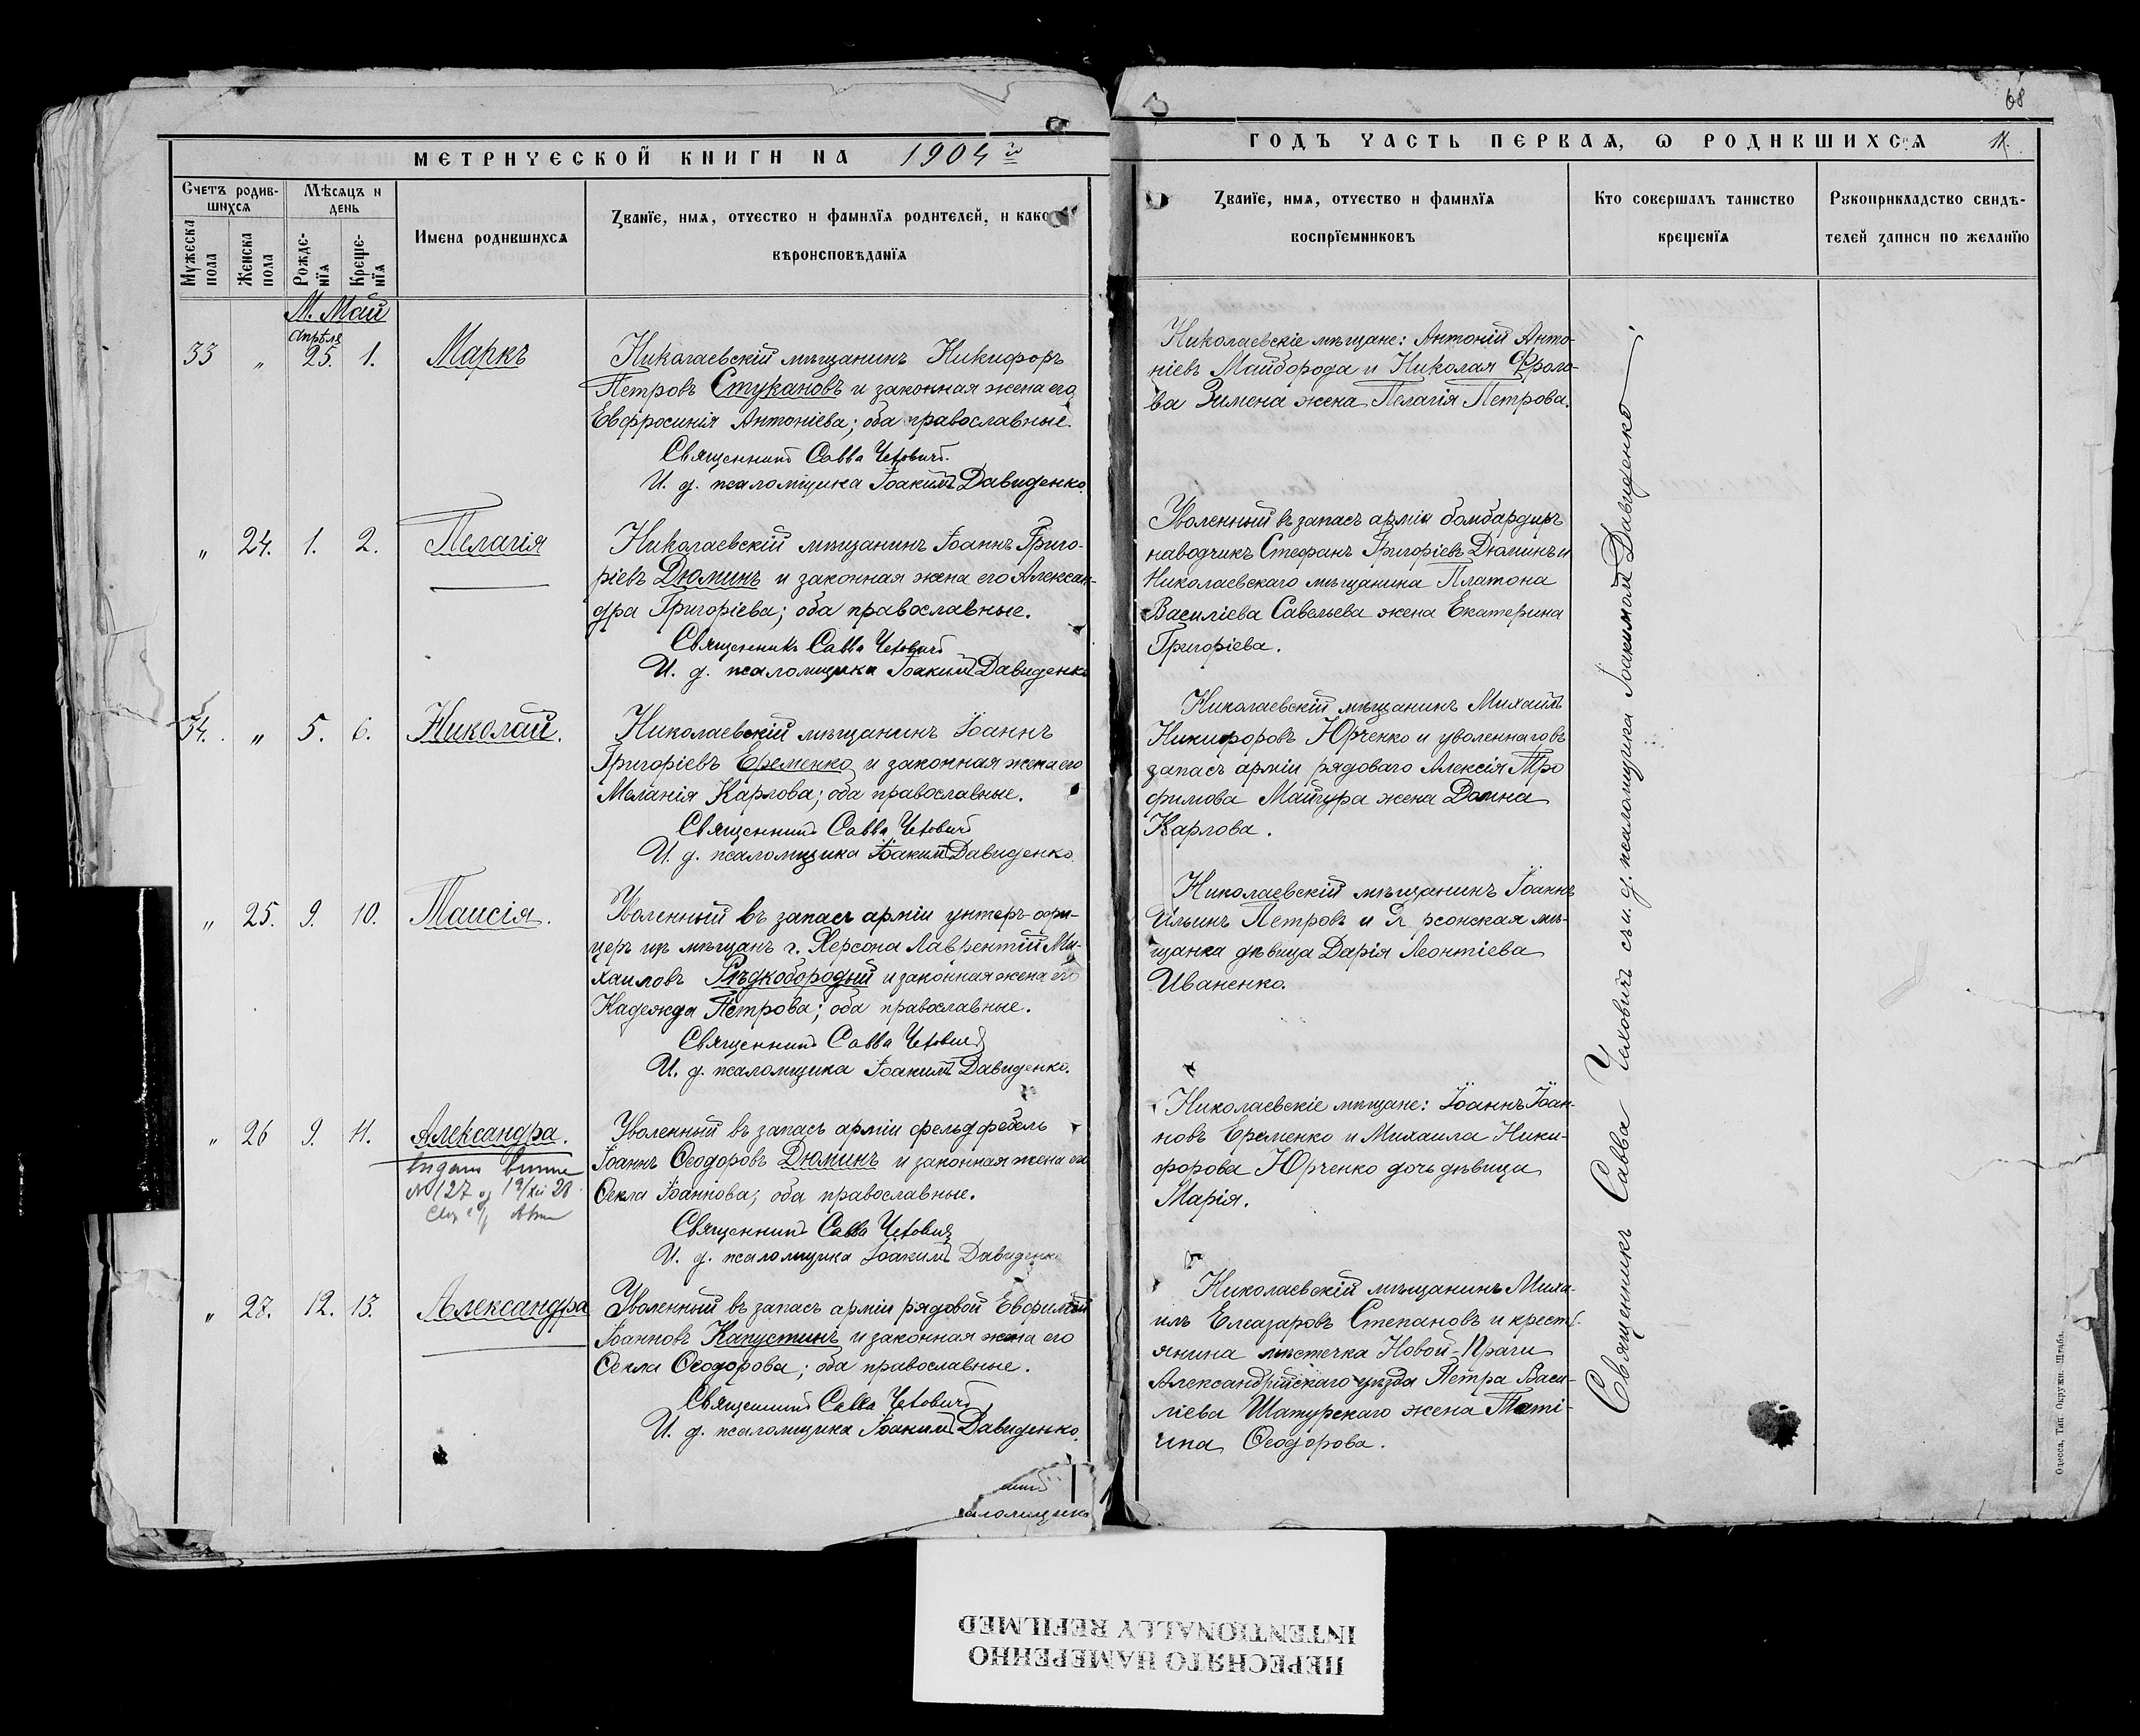 МЕТРИЧЕСКОЙ КНИГИ НА 1904й
Счетъ родив-
шихся
Мѣсяцъ и
день
Мужеска
пола
Женска
пола
Рожде-
нїя
Креще-
нїя
Имена родившихся
Званїе, имя, отчество и фамилїя родителей, и како
вѣроисповѣданїя
М. Май
Апрѣля
33 „ 25. 1. Маркъ
Николаевскій мѣщанинъ Никифоръ
Петровъ Стукановъ и законная жена его
Евфросинія Антоніева; оба православные.
Священникъ Савва Чеховичъ.
И. д. псаломщика Іоакимъ Давиденко.
„ 24. 1. 2. Пелагія
Николаевскій мѣщанинъ Іоаннъ Григо-
ріевъ Дюминъ и законная жена его Алексан-
дра Григоріева; оба православные.
Священникъ Савва Чеховичъ
И. д. псаломщика Іоакимъ Давиденко
34. „ 5. 6. Николай.
Николаевскій мѣщанинъ Іоаннъ
Григоріевъ Еременко и законная жена его
Меланія Карлова; оба православные.
Священникъ Савва Чеховичъ
И. д. псаломщика Іоакимъ Давиденко.
„ 25. 9. 10. Таисія.
Уволенный въ запасъ арміи унтеръ-офи-
церъ изъ мѣщанъ г. Херсона Лаврентій Ми-
хаиловъ Рѣдкобородый и законная жена его
Надежда Петрова; оба православные.
Священникъ Савва Чеховичъ
И. д. псаломщика Іоакимъ Давиденко.
„ 26 9. 11. Александра.
№ 127 19/XII 28
Уволенный въ запасъ арміи фельдфебель
Іоаннъ Ѳеодоровъ Дюминъ и законная жена его
Ѳекла Іоаннова; оба православные.
Священникъ Савва Чеховичъ
И. д. псаломщика Іоакимъ Давиденко
„ 27. 12. 13. Александра
Уволенный въ запасъ арміи рядовой Евфимій
Іоанновъ Капустинъ и законная жена его
Ѳекла Ѳеодорова; оба православные.
Священникъ Савва Чеховичъ
И. д. псаломщика Іоакимъ Давиденко.
аломщика
68
ГОДЪ ЧАСТЬ ПЕРВАЯ, Ѡ РОДИВШИХСЯ 11.
Званїе, имя, отчество и фамилїя
воспрїемниковъ
Кто совершалъ таинство
крещенїя
Рукоприкладство свидѣ-
телей записи по желанїю
Николаевскіе мѣщане: Антоній Анто-
ніевъ Майборода и Николая Фроло-
ва Зимена жена Пелагія Петрова.
Уволенный въ запасъ арміи бомбардиръ
наводчикъ Стефанъ Григоріевъ Дюминъ и
Николаевскаго мѣщанина Платона
Василіева Савельева жена Екатерина
Григоріева.
Николаевскій мѣщанинъ Михаилъ
Никифоровъ Юрченко и уволеннаго въ
запасъ арміи рядоваго Алексія Тро
фимова Майгура жена Домна
Карлова.
Николаевскій мѣщанинъ Іоаннъ
Ильинъ Петровъ и Х рсонская мѣ-
щанка дѣвица Дарія Леонтіева
Иваненко.
Николаевскіе мѣщане: Іоаннъ Іоан-
новъ Еременко и Михаила Ники-
форова Юрченко дочь дѣвица
Марія.
Николаевскій мѣщанинъ Миха-
илъ Елеазаровъ Степановъ и кресть
янина мѣстечка Новой-Праги
Александрійскаго уѣзда Петра Васи-
ліева Шатурскаго жена Таті-
ана Ѳеодорова.
Священникъ Савва Чеховичъ съ и. д. псаломщика Іоакимомъ Давиденко
Одесса, Тип. Окружн. Штаба.
ПЕРЕСНЯТО НАМЕРЕННО
INTENTIONALLY REFILMED